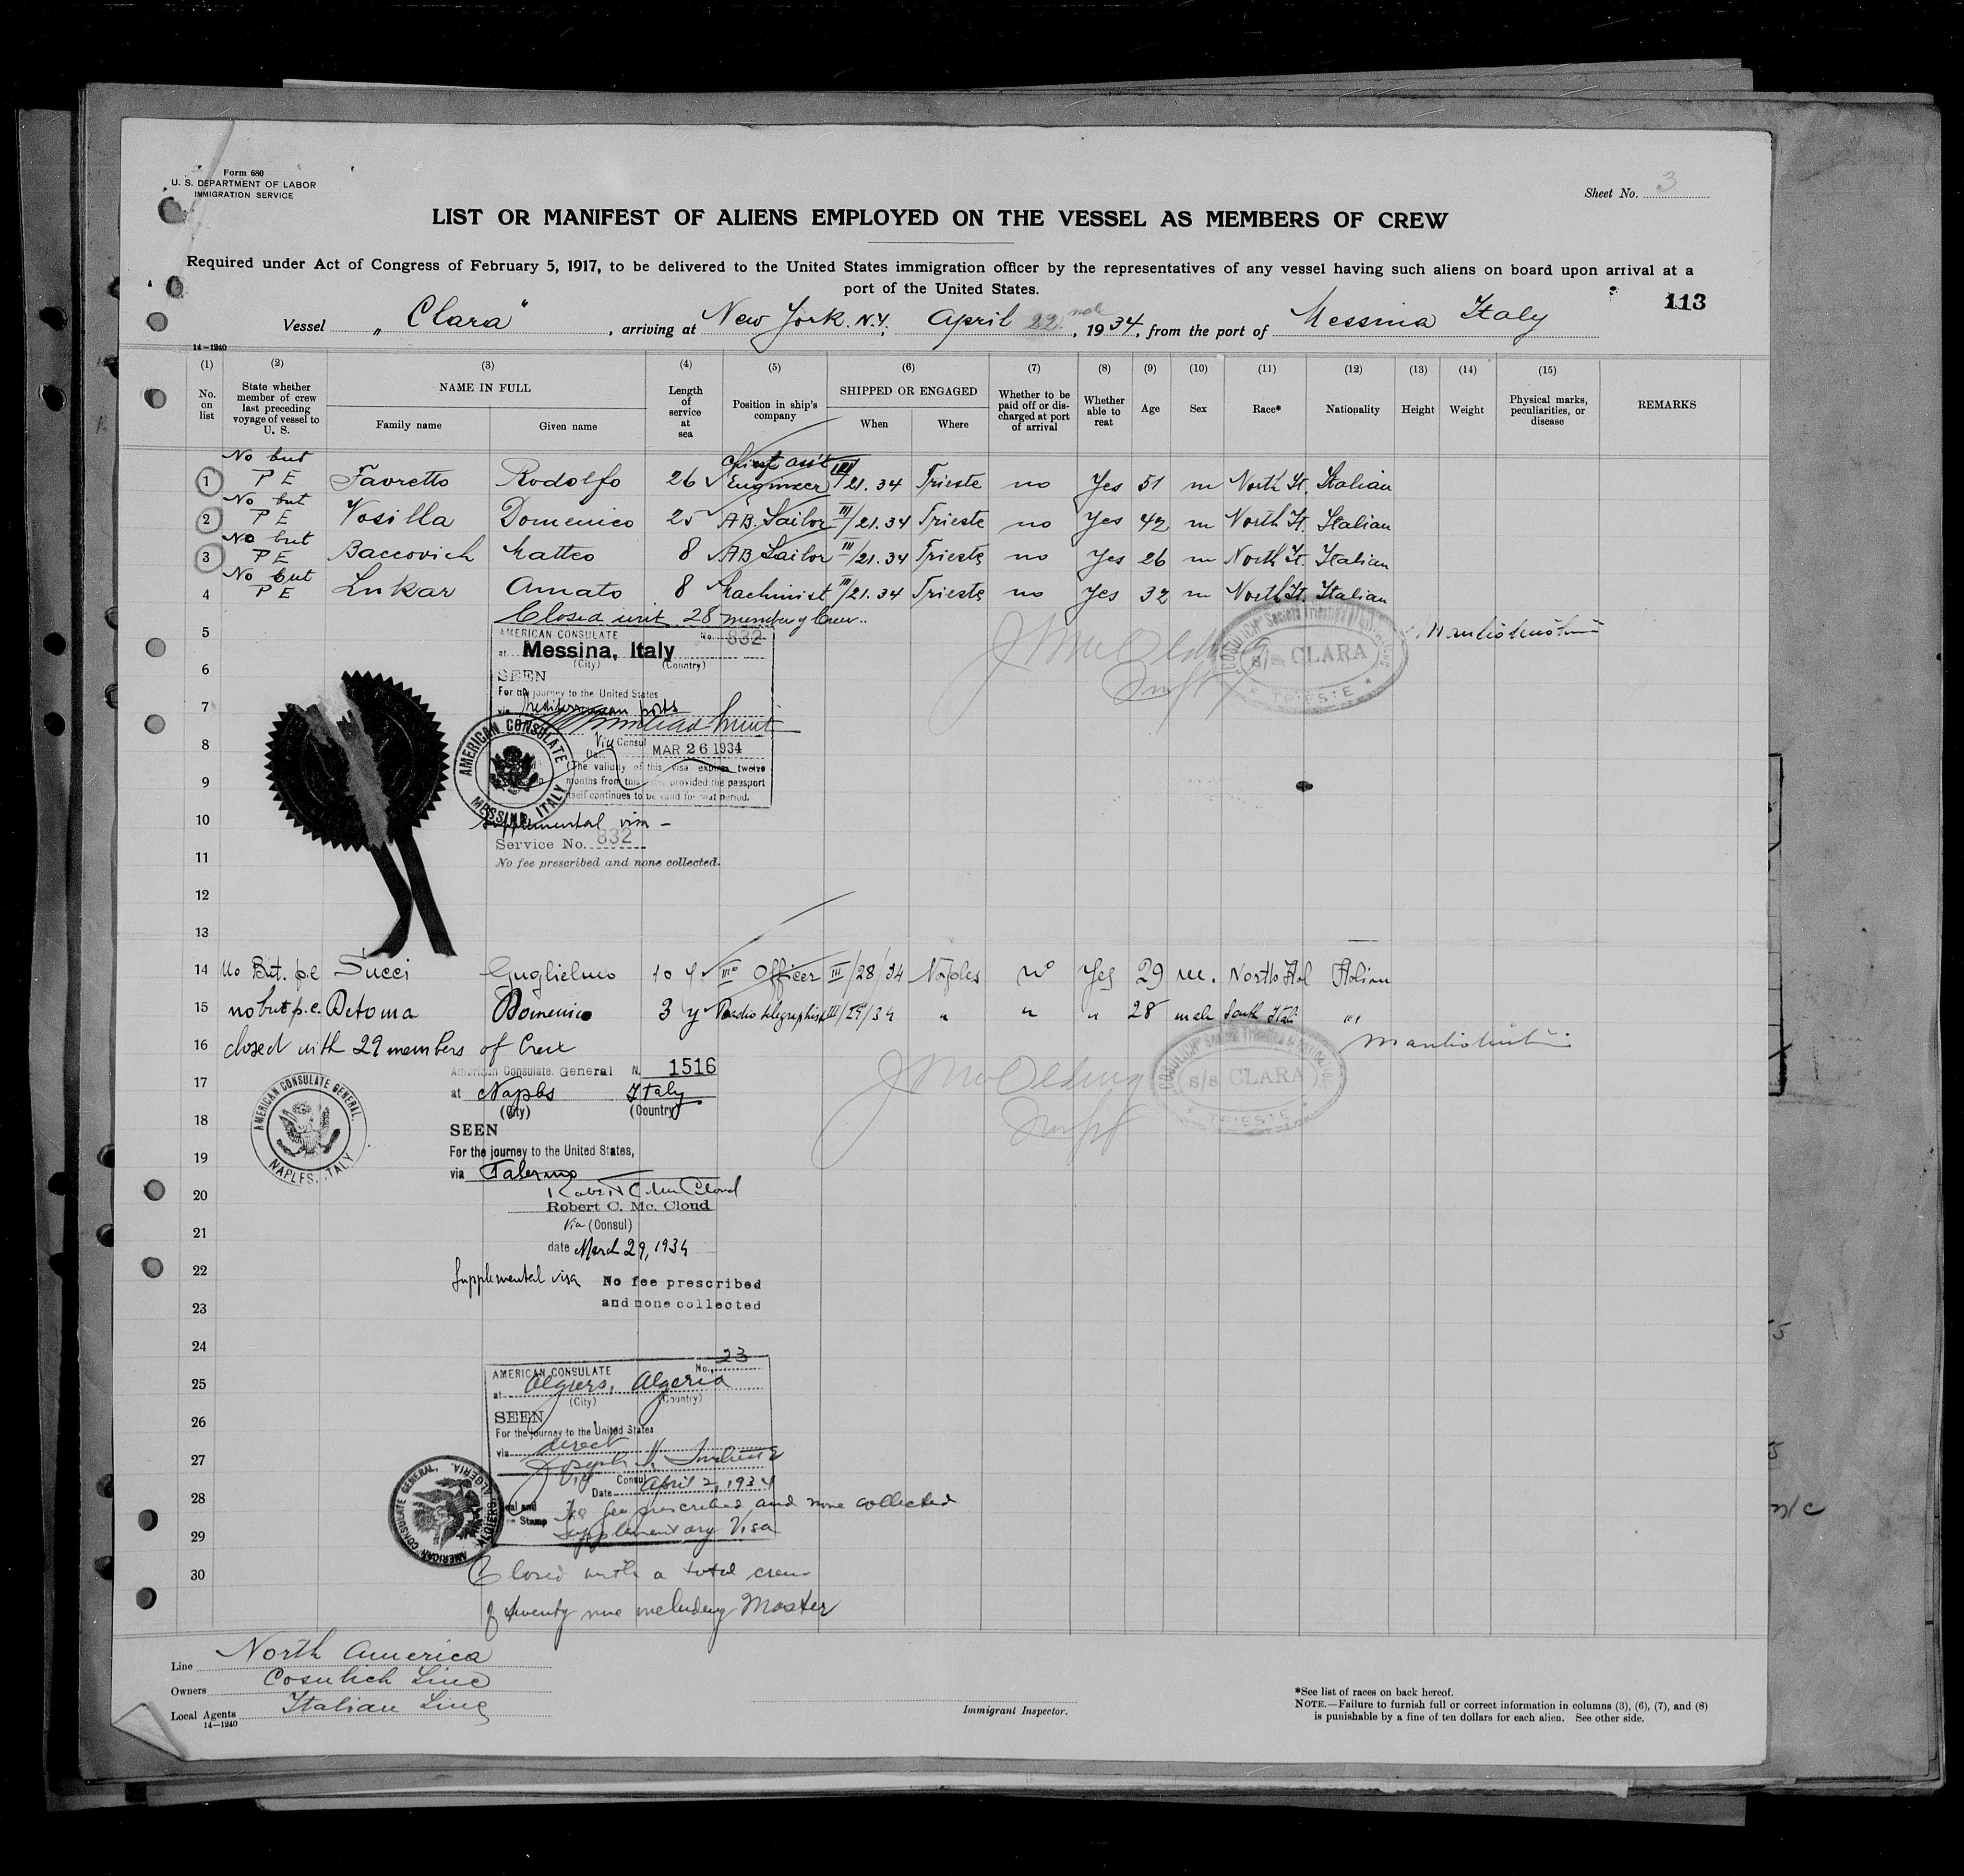 Form 680
U. S. DEPARTMENT OF LABOR
IMMIGRATION SERVICE
Sheet No. 3
LIST OR MANIFEST OF ALIENS EMPLOYED ON THE VESSEL AS MEMBERS OF CREW
Required under Act of Congress of February 5, 1917, to be delivered to the United States immigration officer by the representatives of any vessel having such aliens on board upon arrival at a
port of the United States.
113
Vessel „Clara", arriving at New York. N.Y. April 22nd, 1934, from the port of Messina Italy
14-1240
(1) (2) (3) (4) (5) (6) (7) (8) (9) (10) (11) (12) (13) (14) (15)
No. on list
State whether member of crew last preceding voyage of vessel to U. S.
NAME IN FULL
Family name
Given name
Length of service at sea
Position in ship's company
SHIPPED OR ENGAGED
When
Where
Whether to be paid off or discharged at port of arrival
Whether able to reat
Age
Sex
Race*
Nationality
Height
Weight
Physical marks, peculiarities, or disease
REMARKS
1 No but P E Favretto Rodolfo 26 Chief Ass't Engineer III/21.34 Trieste no Yes 51 m North It. Italian
2 No but P E Vosilla Domenico 25 AB. Sailor III/21.34 Trieste no Yes 42 m North It. Italian
3 No but P E Baccovich Matteo 8 AB Sailor III/21.34 Trieste no Yes 26 m North It. Italian
4 No but P E Lukar Amato 8 Machinist III/21.34 Trieste no Yes 32 m North It. Italian
Closed with 28 members of Crew..
5
AMERICAN CONSULATE No. 832
at Messina, Italy
(City) (Country)
6
SEEN
For the journey to the United States
7
via Mediterranean ports
8
Vice Consul
Date MAR 26 1934
(The validity of this visa expires twelve
9
months from this provided the passport
itself continues to be valid for that period.
AMERICAN CONSULATE
MESSINA, ITALY
10
Supplemental visa -
Service No. 832
11
No fee prescribed and none collected.
"COSULICH"
s/s CLARA
TRIESTE
12
13
14 No But. p.e Succi Guglielmo 10 y IIIo Officer III/28/34 Naples no Yes 29 m. North Ital Italian
15 no but p.e. Detoma Domenico 3 y Radio telegraphist III/29/34 " " " 28 male South Itali "
16 closed with 29 members of Crew
American Consulate. General N. 1516
17
at Naples Italy
(City) (Country)
18
SEEN
19
For the journey to the United States,
via Palermo
20
Robert C. Mc Cloud
Robert C. Mc. Cloud
21
Vice (Consul)
date March 29, 1934
AMERICAN CONSULATE GENERAL.
NAPLES, ITALY
"COSULICH"
s/s CLARA
TRIESTE
22
Supplemental visa No fee prescribed
23
and none collected
24
AMERICAN CONSULATE No. 23
25
at Algiers, Algeria
(City) (Country)
26
SEEN
For the journey to the United States
27
via direct
Vice Consul
Date April 2, 1934
28
Seal and
No fee prescribed and none collected
Stamp
29
Supplementary Visa
AMERICAN CONSULATE GENERAL,
ALGIERS, ALGERIA.
30
Closed with a total crew
of twenty nine including Master
Line North America
Owners Cosulich Line
Local Agents Italian Line
14-1240
Immigrant Inspector.
*See list of races on back hereof.
NOTE.—Failure to furnish full or correct information in columns (3), (6), (7), and (8)
is punishable by a fine of ten dollars for each alien. See other side.